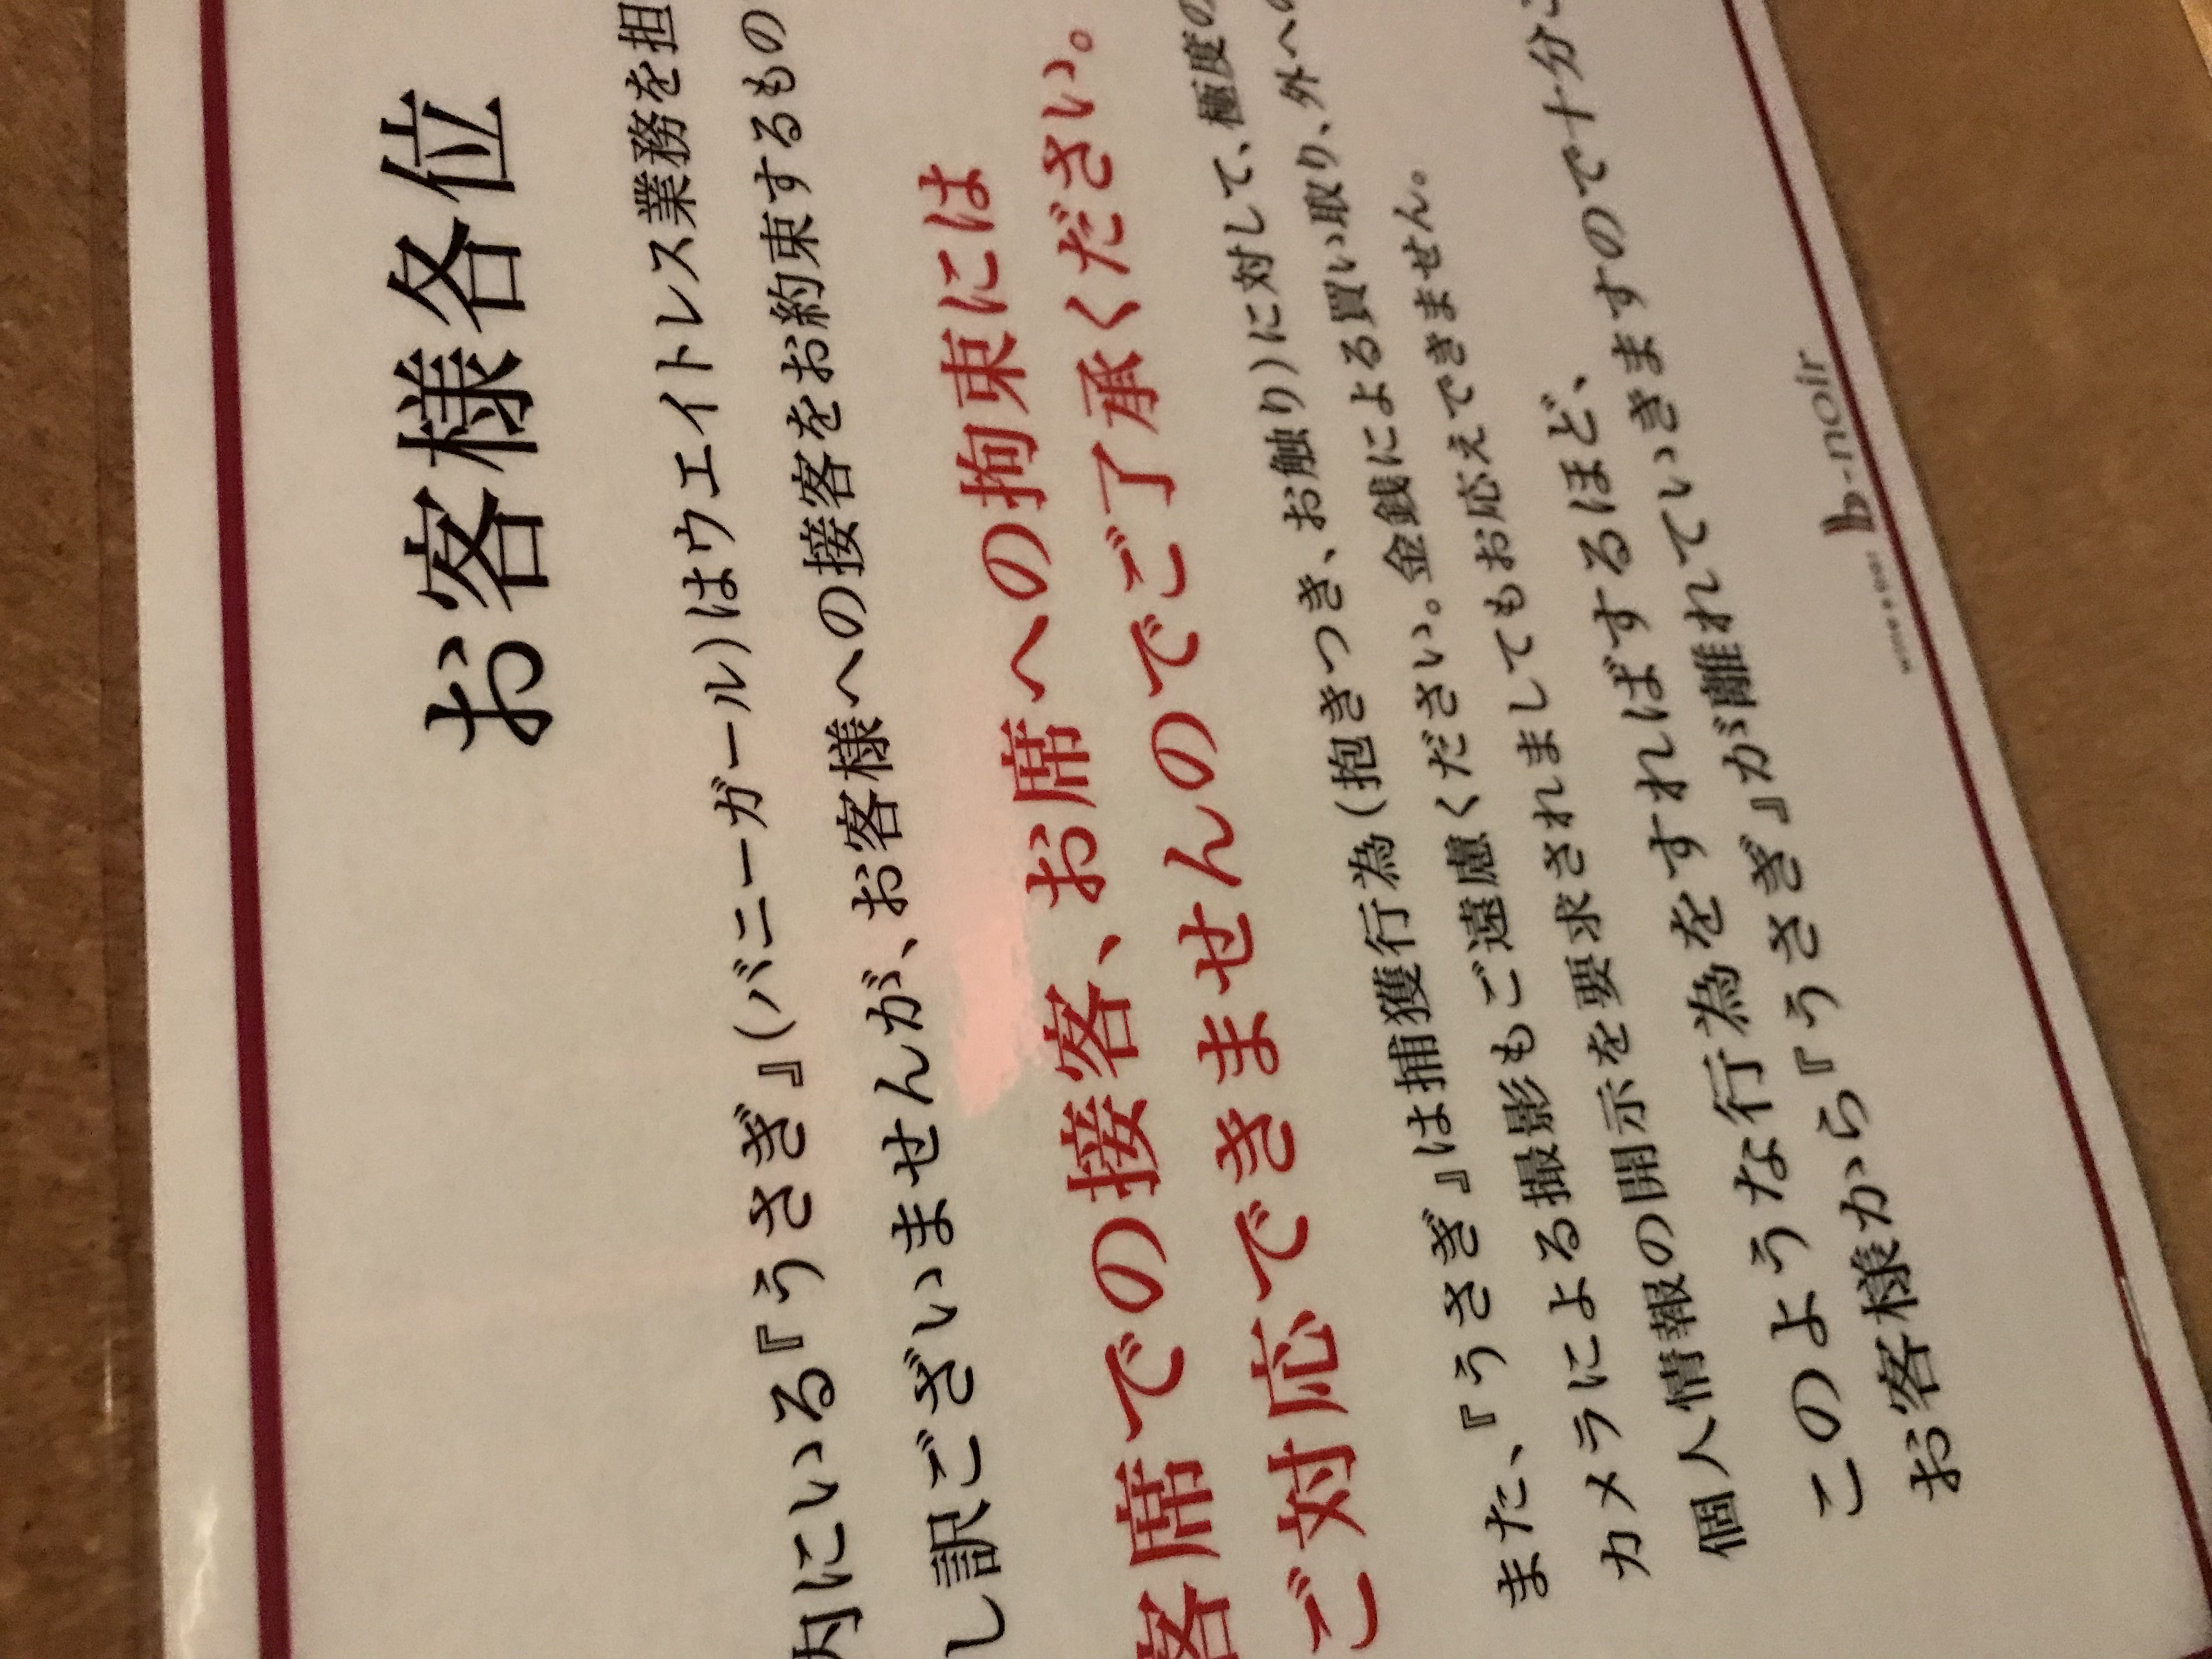 お客様各位
内にいる『うさぎ』(バニーガール)はウエイトレス業務を担
し訳ございませんが、お客様への接客をお約束するもの
客席での接客、お席への拘束には
ご対応できませんのでご了承ください。
また、『うさぎ』は捕獲行為(抱きつき、お触り)に対して、極度の
カメラによる撮影もご遠慮ください。金銭による買い取り、外への
個人情報の開示を要求されましてもお応えできません。
このような行為をすればするほど、
お客様から『うさぎ』が離れていきますので十分
b-noir